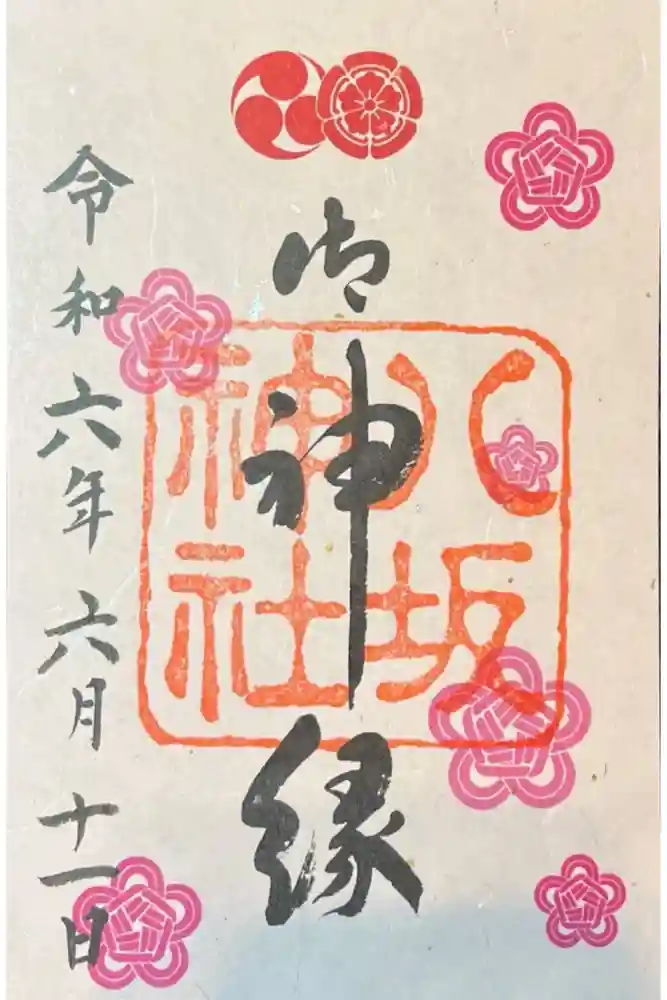 御神縁
八坂神社
令和六年六月十一日